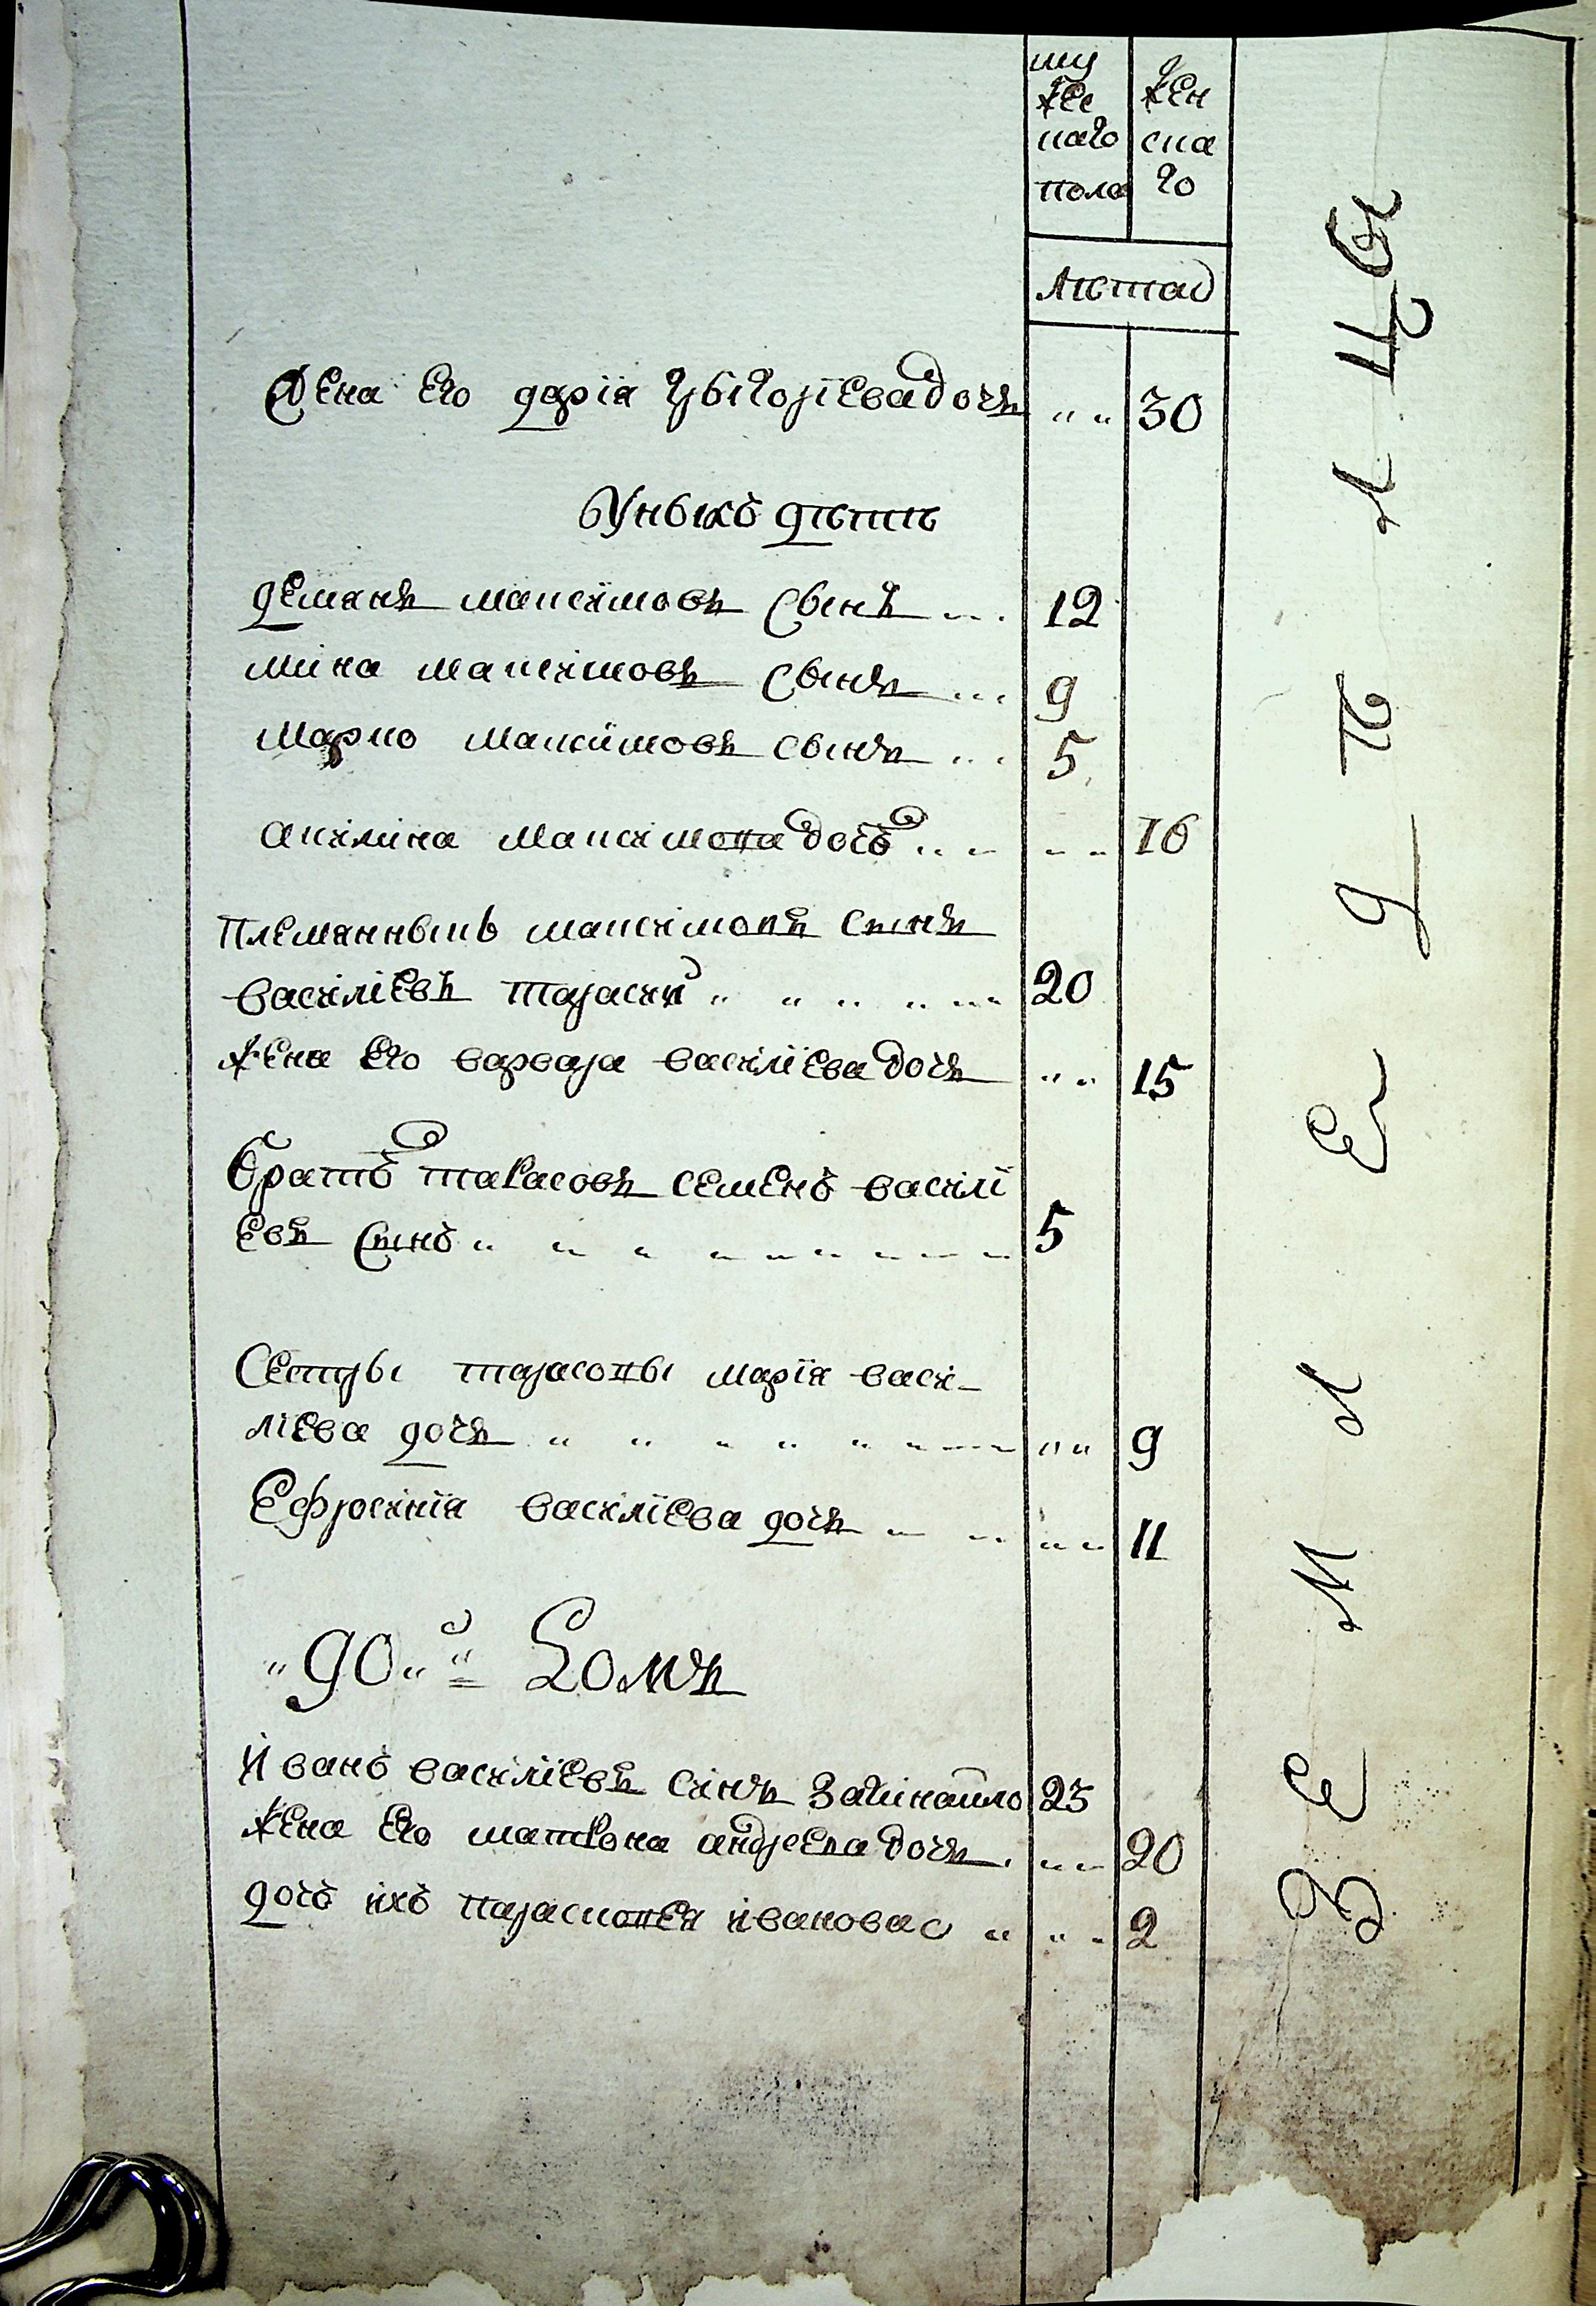 му
жес
каго
пола
жен
ска
го
лѣта
Жена его дарія григоріева дочъ " " 30
Уныхъ дѣти
демянъ максимовъ сынъ ... 12
мина максимовъ сынъ ... 9
марко максимовъ сынъ ... 5
акилина максимова дочь ... 16
Племянныкъ максимовъ сынъ
василіевъ тарасій " " " " 20
жена его варвара василіева дочъ " " 15
братъ тарасовъ семенъ василі
евъ сынъ " " " 5
Сестры тарасовы марія васи-
ліева дочъ " " " " 9
Ефросинія василіева дочъ " " 11
" 90 " й Домъ
Иванъ василіевъ синъ 23
жена его матрона андреева дочъ " " 20
дочь ихъ парасковея иванова " " 2
З е м л е д